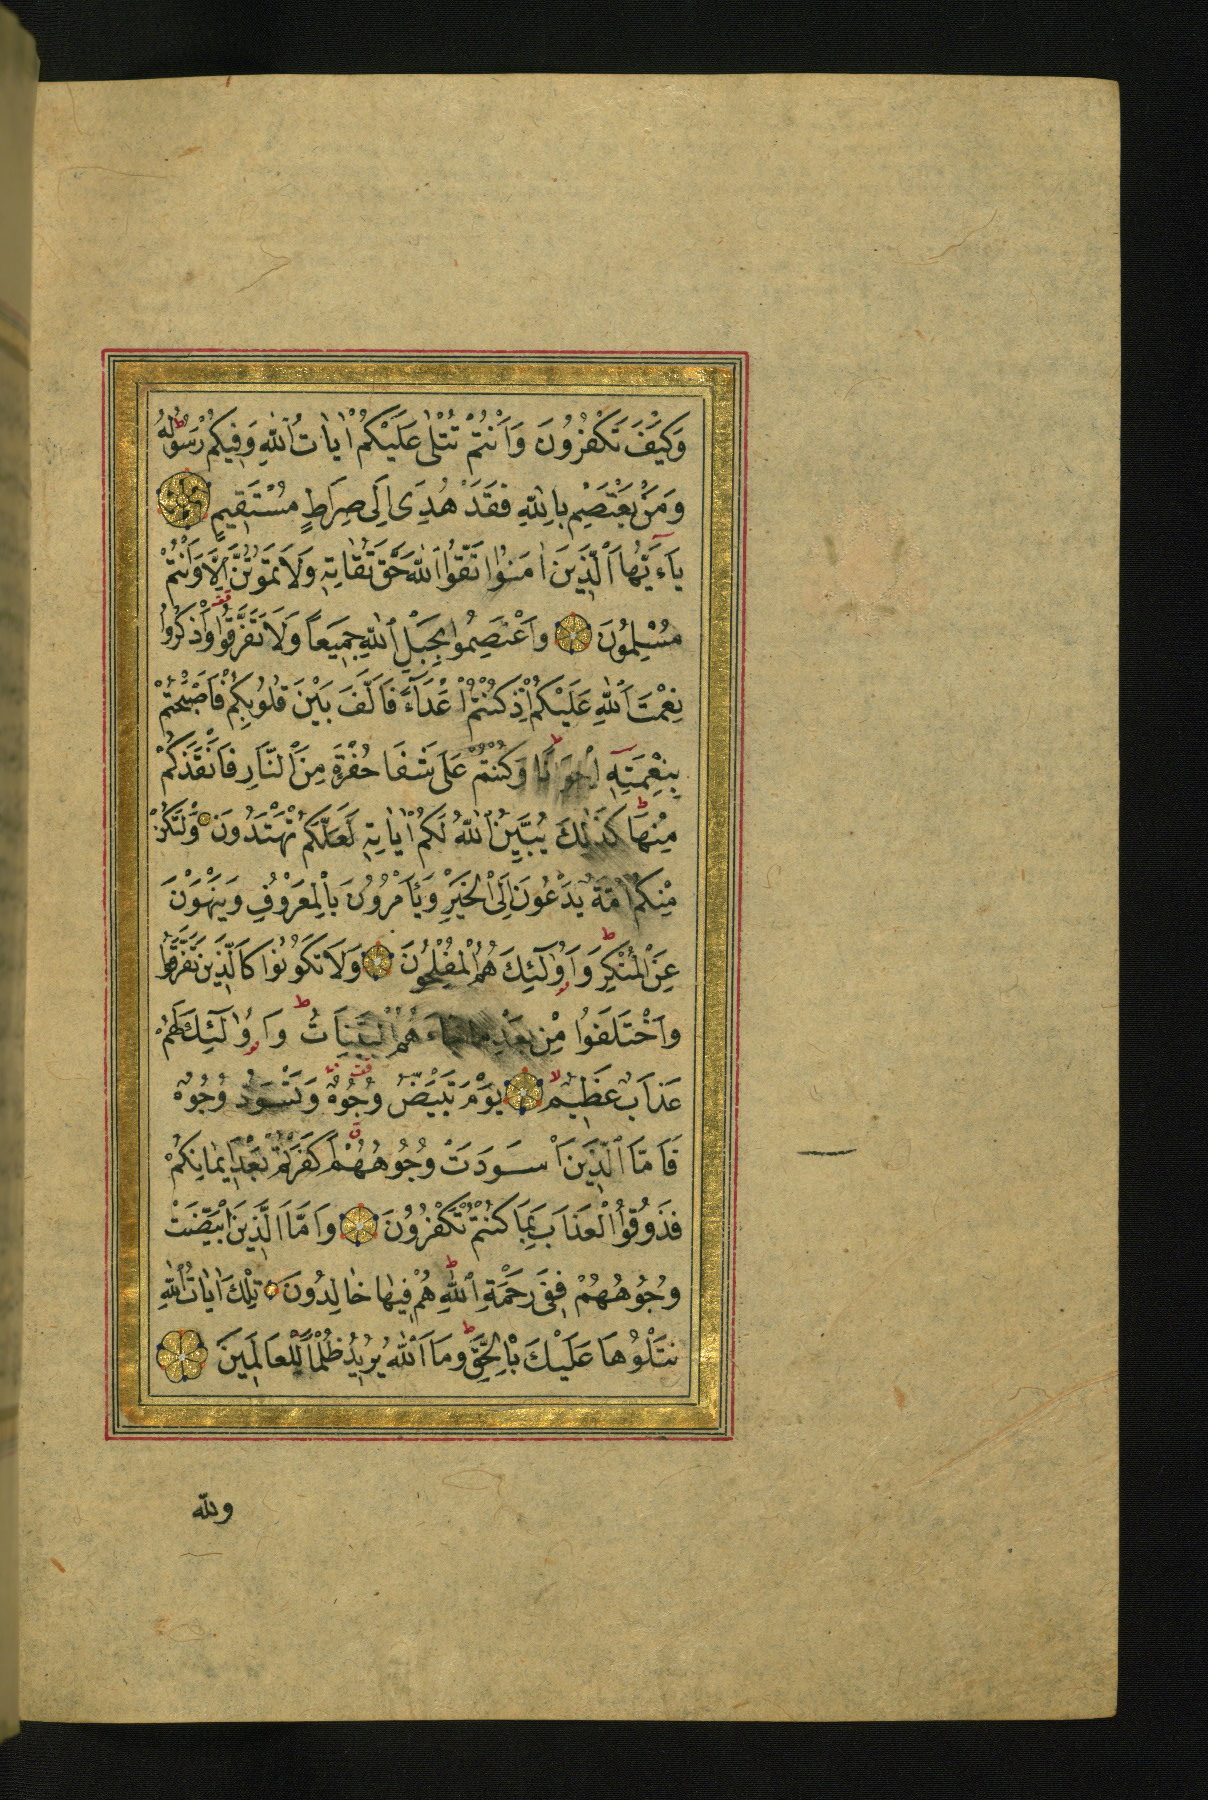 وَكَيْفَ تَكْفُرُونَ وَاَنْتُمْ تُتْلٰى عَلَيْكُمْ اٰيَاتُ اللّٰهِ وَفِيكُمْ رَسُولُهُ ط
وَمَنْ يَعْتَصِمْ بِاللّٰهِ فَقَدْ هُدِىَ اِلَى صِرَاطٍ مُسْتَقِيمٍ
يَآءَيُّهَا الَّذِينَ اٰمَنُوا اتَّقُوا اللّٰهَ حَقَّ تُقَاتِهِ وَلَا تَمُوتُنَّ اِلَّا وَاَنْتُمْ
مُسْلِمُونَ وَاعْتَصِمُوا بِحَبْلِ اللّٰهِ جَمِيعًا وَلَا تَفَرَّقُوا وَاذْكُرُوا
نِعْمَتَ اللّٰهِ عَلَيْكُمْ اِذْ كُنْتُمْ اَعْدَآءً فَاَلَّفَ بَيْنَ قُلُوبِكُمْ فَاَصْبَحْتُمْ
بِنِعْمَتِهِ اِخْوَانًا ط وَكُنْتُمْ عَلَى شَفَا حُفْرَةٍ مِنَ النَّارِ فَاَنْقَذَكُمْ
مِنْهَا ط كَذٰلِكَ يُبَيِّنُ اللّٰهُ لَكُمْ اٰيَاتِهِ لَعَلَّكُمْ تَهْتَدُونَ وَلْتَكُنْ
مِنْكُمْ اُمَّةٌ يَدْعُونَ اِلَى الْخَيْرِ وَيَأْمُرُونَ بِالْمَعْرُوفِ وَيَنْهَوْنَ
عَنِ الْمُنْكَرِ ط وَاُولٰٓئِكَ هُمُ الْمُفْلِحُونَ وَلَا تَكُونُوا كَالَّذِينَ تَفَرَّقُوا
وَاخْتَلَفُوا مِنْ بَعْدِ مَا جَآءَهُمُ الْبَيِّنَاتُ ط وَاُولٰٓئِكَ لَهُمْ
عَذَابٌ عَظِيمٌ لا يَوْمَ تَبْيَضُّ وُجُوهٌ وَتَسْوَدُّ وُجُوهٌ
فَاَمَّا الَّذِينَ اسْوَدَّتْ وُجُوهُهُمْ ق اَكَفَرْتُمْ بَعْدَ اِيمَانِكُمْ
فَذُوقُوا الْعَذَابَ بِمَا كُنْتُمْ تَكْفُرُونَ وَاَمَّا الَّذِينَ ابْيَضَّتْ
وُجُوهُهُمْ فَفِى رَحْمَةِ اللّٰهِ ط هُمْ فِيهَا خَالِدُونَ تِلْكَ اٰيَاتُ اللّٰهِ
نَتْلُوهَا عَلَيْكَ بِالْحَقِّ ط وَمَا اللّٰهُ يُرِيدُ ظُلْمًا لِلْعَالَمِينَ
ولله